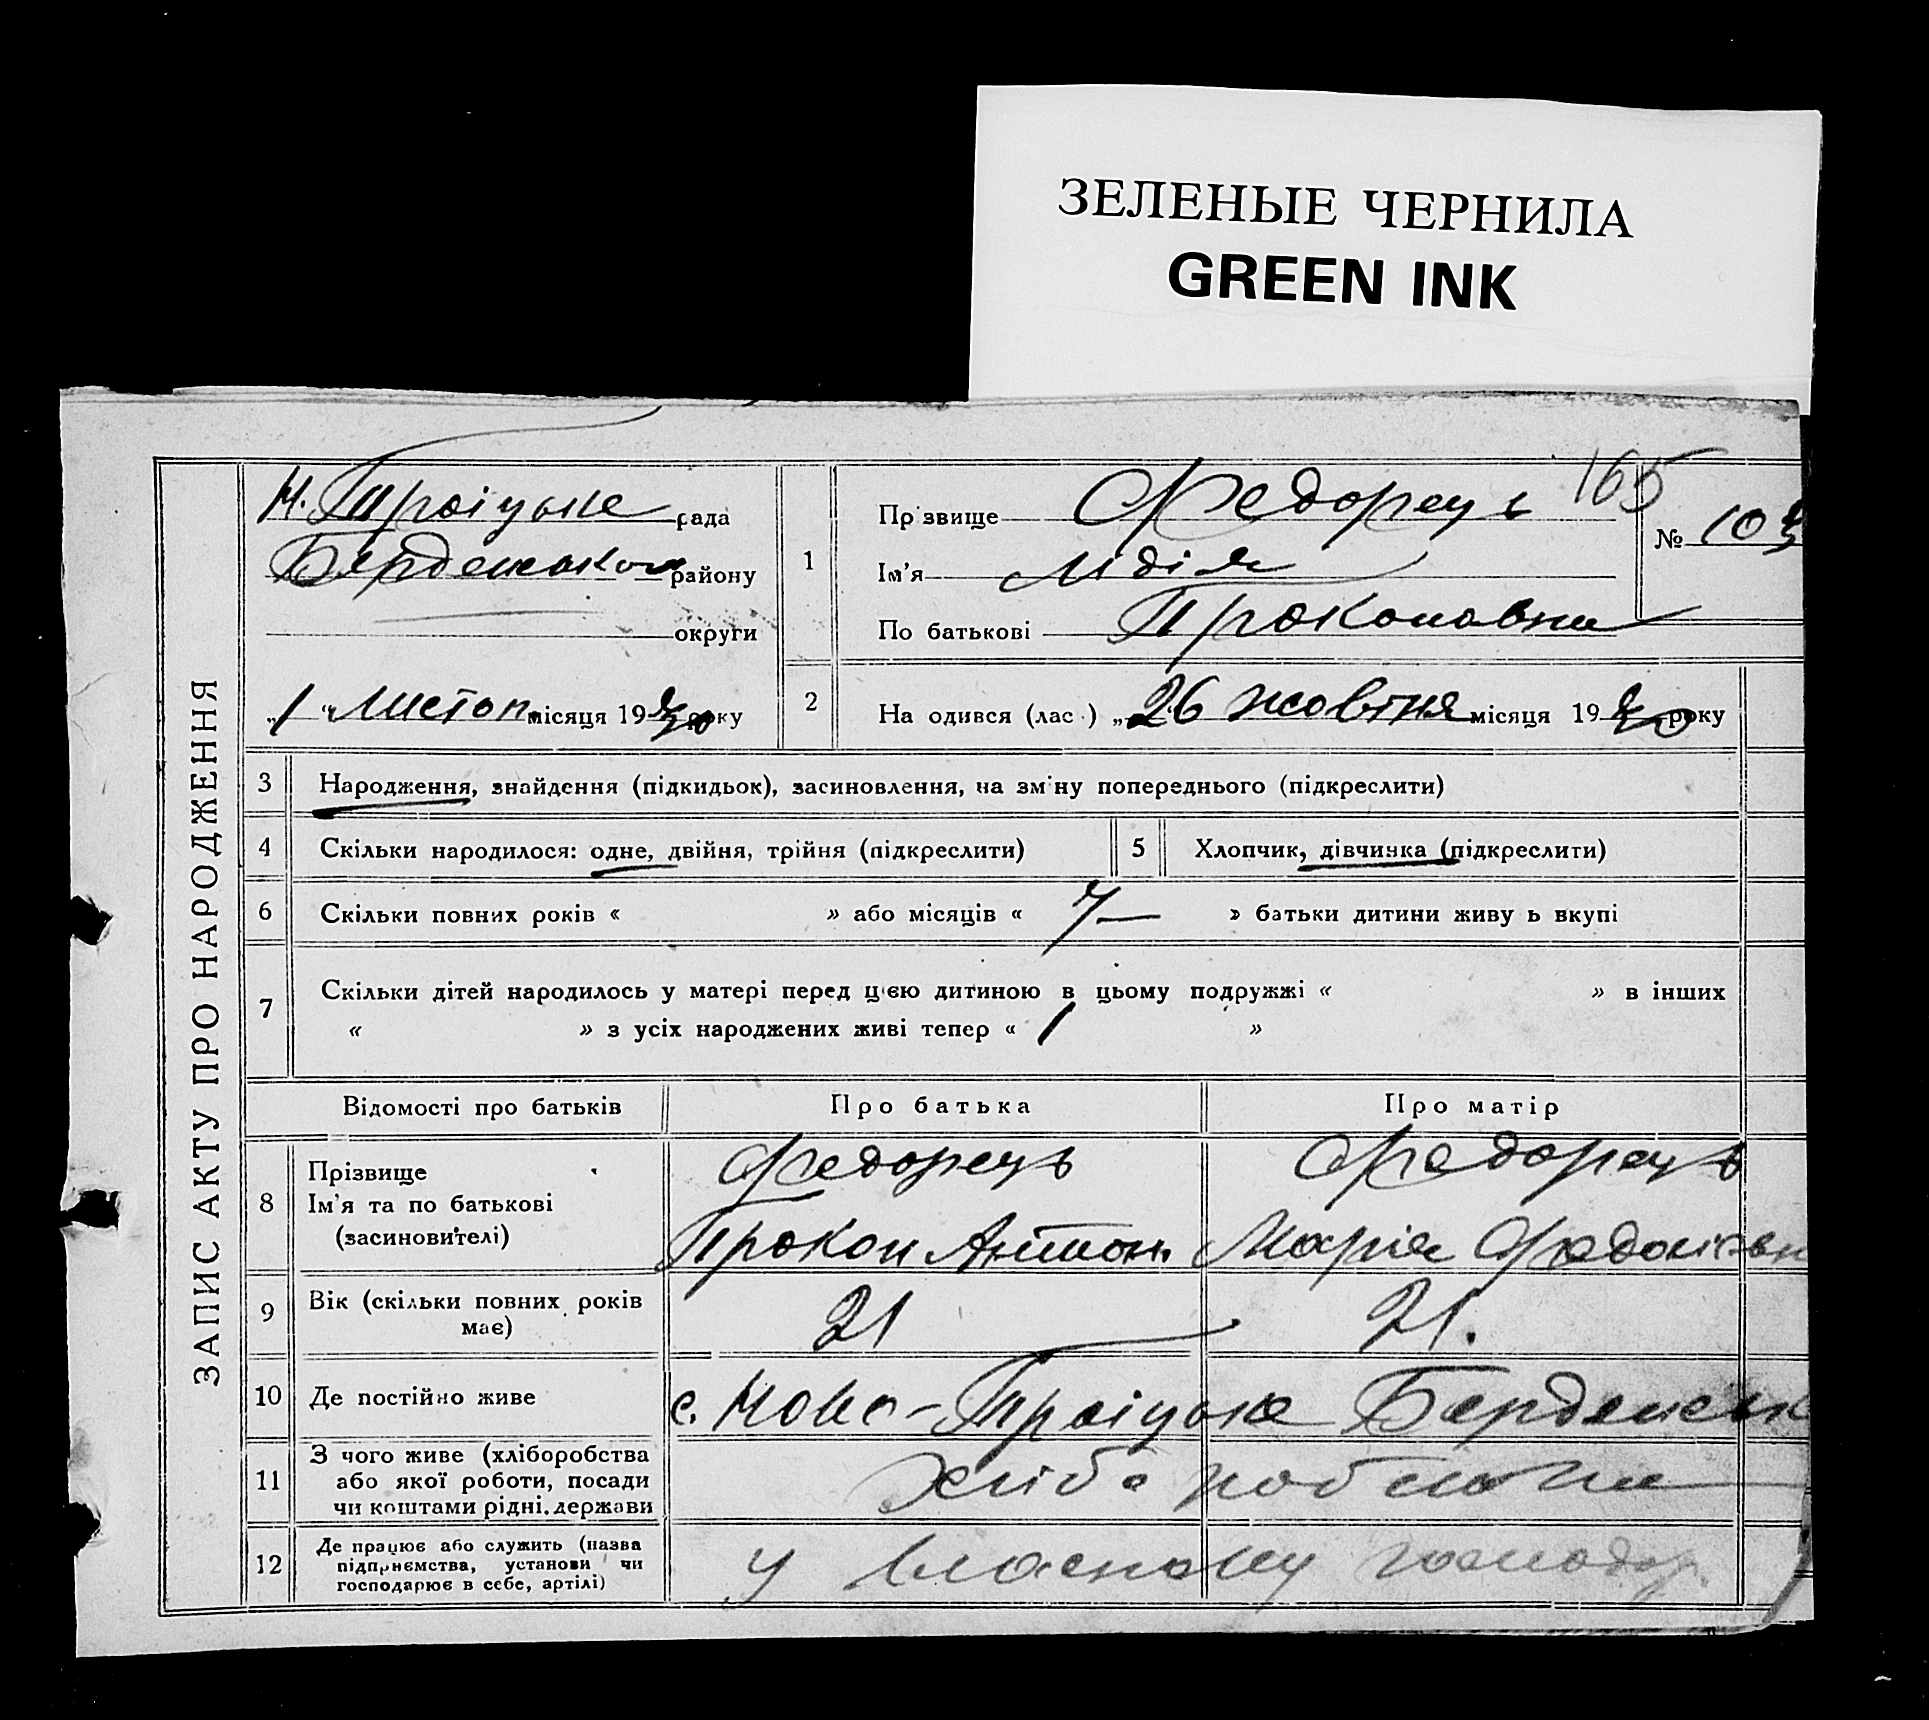 ЗЕЛЕНЫЕ ЧЕРНИЛА
GREEN INK
ЗАПИС АКТУ ПРО НАРОДЖЕННЯ
Н. Троіцьке рада
району
округи
„1“ Листоп. місяця 19 року
1
Прзвище Федорець
165
№
Ім'я Лідія
По батькові Прокоповна
2
На одився (лас ) „26 жовтня місяця 19 року
3 Народження, знайдення (підкидьок), засиновлення, на зміну попереднього (підкреслити)
4 Скільки народилося: одне, двійня, трійня (підкреслити)
5 Хлопчик, дівчинка (підкреслити)
6 Скільки повних років « » або місяців « » батьки дитини живу ь вкупі
7 Скільки дітей народилось у матері перед цією дитиною в цьому подружжі « » в інших
« » з усіх народжених живі тепер « 1 »
Відомості про батьків Про батька Про матір
8 Прізвище Федорець Федорець
Ім'я та по батькові
(засиновителі) Прокоп Антон. Марія
9 Вік (скільки повних років має) 21 21.
10 Де постійно живе с. Ново-Троіцьке Берденськ
11 З чого живе (хліборобства
або якої роботи, посади
чи коштами рідні, держави
12 Де працює або служить (назва
підприємства, установи чи
господарює в себе, артілі)
у власному господар.